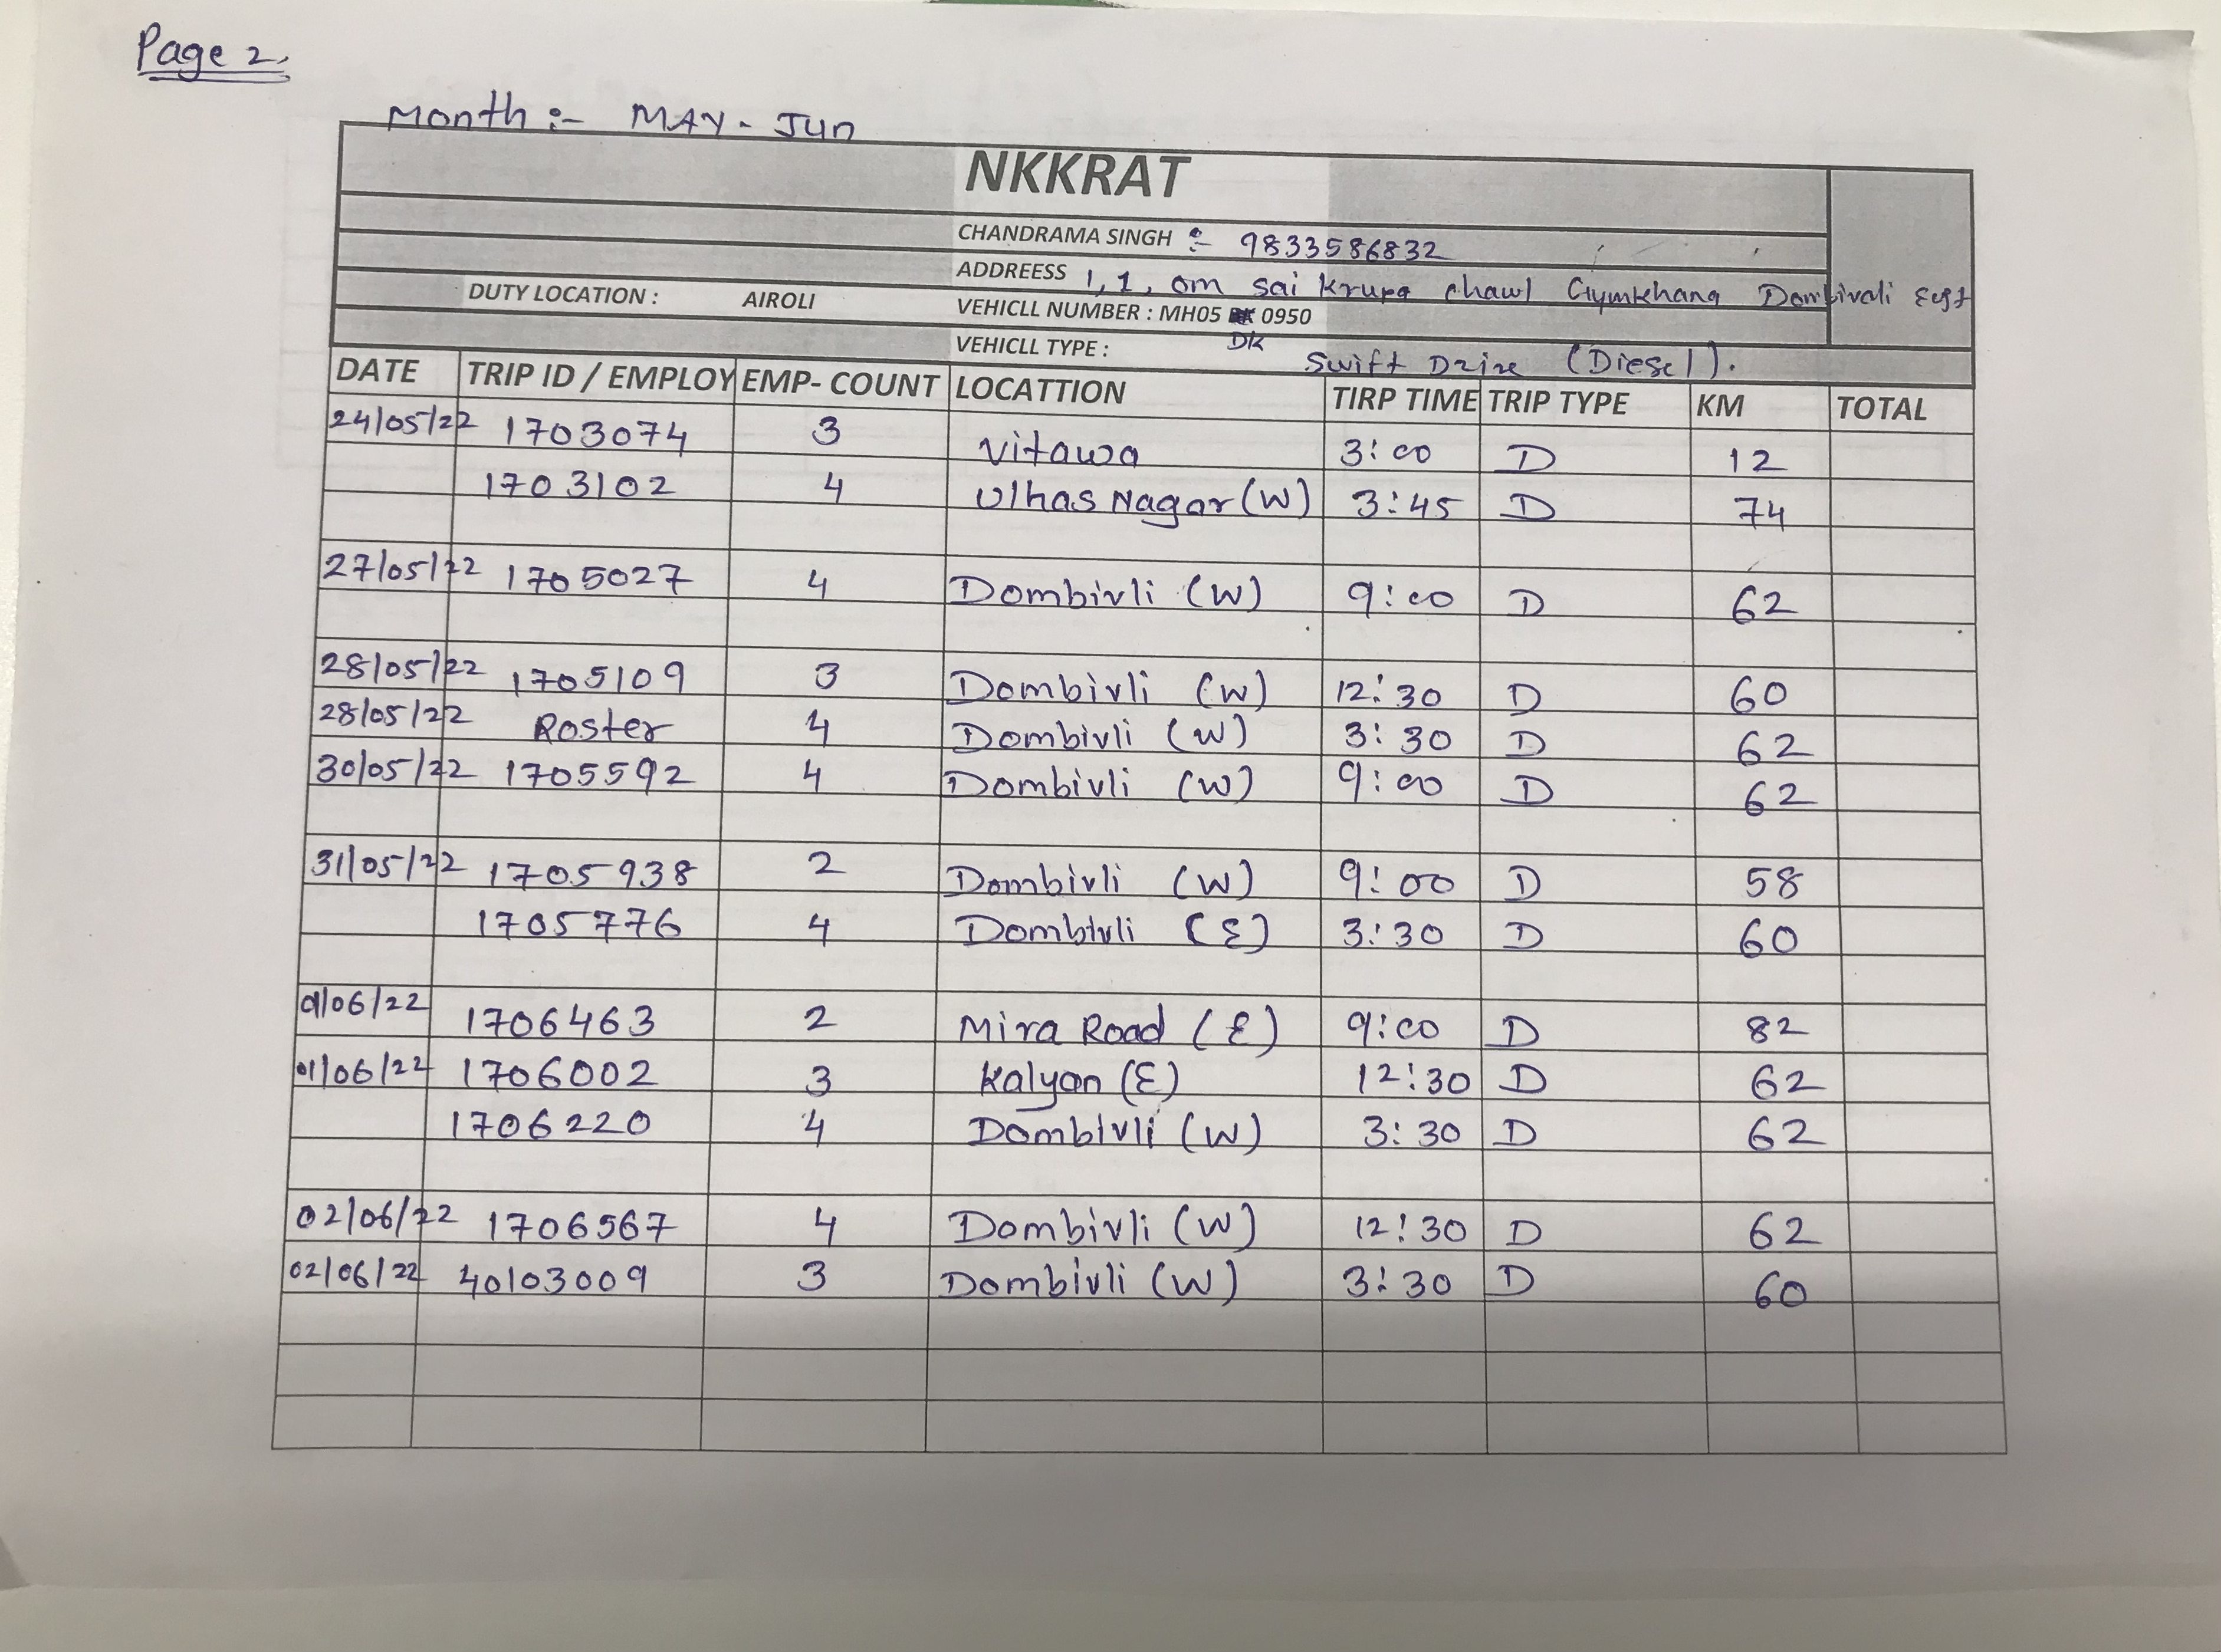 Page 2,
Month :- MAY - Jun
NKKRAT
CHANDRAMA SINGH :- 9833586832
ADDREESS 1, 1, om sai krupa chawl Gymkhana Dombivali East
DUTY LOCATION : AIROLI VEHICLL NUMBER : MH05 0950
DK
VEHICLL TYPE : Swift Dzire (Diesel).
DATE TRIP ID / EMPLOY EMP- COUNT LOCATTION TIRP TIME TRIP TYPE KM TOTAL
24/05/22 1703074 3 Vitawa 3:00 D 12
1703102 4 Ulhas Nagar (W) 3:45 D 74
27/05/22 1705027 4 Dombivli (W) 9:00 D 62
28/05/22 1705109 3 Dombivli (W) 12:30 D 60
28/05/22 Roster 4 Dombivli (W) 3:30 D 62
30/05/22 1705592 4 Dombivli (W) 9:00 D 62
31/05/22 1705938 2 Dombivli (W) 9:00 D 58
1705776 4 Dombivli (E) 3:30 D 60
01/06/22 1706463 2 Mira Road (E) 9:00 D 82
01/06/22 1706002 3 Kalyan (E) 12:30 D 62
1706220 4 Dombivli (W) 3:30 D 62
02/06/22 1706567 4 Dombivli (W) 12:30 D 62
02/06/22 40103009 3 Dombivli (W) 3:30 D 60